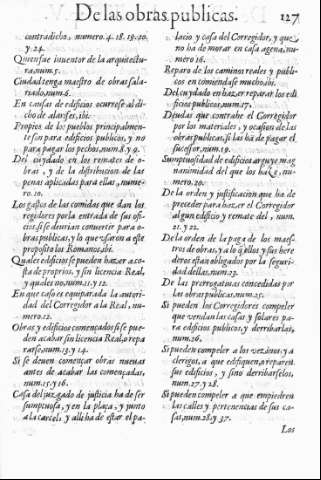 De las obras publicas.
127
contradicho. numero. 4. 18. 19. 20.
y. 24.
Quien fue inuentor de la arquitectu-
ra, num. 5.
Ciudad tenga maestro de obras sala-
riado, num. 6.
En causas de edificios ocurrese al di-
cho de alarifes, ibi.
Propios de los pueblos principalmen-
te son para edificios publicos, y no
para pagar los pechos, num. 8. y 9.
Del cuydado en los remates de o-
bras, y de la distribucion de las
penas aplicadas para ellas, nume-
ro. 10.
Los gastos de las comidas que dan los
regidores por la entrada de sus ofi-
cios, si se deurian conuertir para o-
bras publicas, y lo que vsaron a este
proposito los Romanos, ibi.
Quales edificios se pueden hazer a co-
sta de proprios, y sin licencia Real,
y quales no, num. 11. y 12.
En que caso es equiparada la autori-
dad del Corregidor a la Real, nu-
mero. 12.
Obras y edificios començados si se pue-
den acabar sin licencia Real, o repa
rarse, num. 13. y 14.
Si se deuen començar obras nueuas
antes de acabar las començadas,
num. 15. y 16.
Casa del juzgado de justicia ha de ser
sumptuosa, y en la plaça, y junto
a la carcel, y alli ha de estar el pa-
lacio y casa del Corregidor, y que
no ha de morar en casa agena, nu-
mero 16.
Reparo de los caminos reales y publi-
cos es comiendase mucho, ibi.
Del cuydado en hazer reparar los edi
ficios publicos, num. 17.
Deudas que contrahe el Corregidor
por los materiales, y ocasion de las
obras publicas, si las ha de pagar el
sucessor, num. 19.
Sumptuosidad de edificios arguye mag
nanimidad del que los haze, nu-
mero. 20.
De la orden y justificacion que ha de
preceder para hazer el Corregidor
algun edificio y remate del, num.
21. y 22.
De la orden de la paga de los maes-
tros de obras, y a lo que ellos y sus here
deros estan obligados por la seguri-
dad dellas, num. 23.
De las prerogatiuas concedidas por
las obras publicas, num. 25.
Si pueden los Corregidores compeler
que vendan las casas y solares pa-
ra edificios publicos, y derribarlas,
num. 26.
Si pueden compeler a los vezinos, y a
clerigos, a que edifiquen, o reparen
sus edificios, y sino derribarselos,
num. 27. y 28.
Si pueden compeler a que empiedren
las calles y pertenencias de sus ca-
sas, num. 28. y 37.
Los